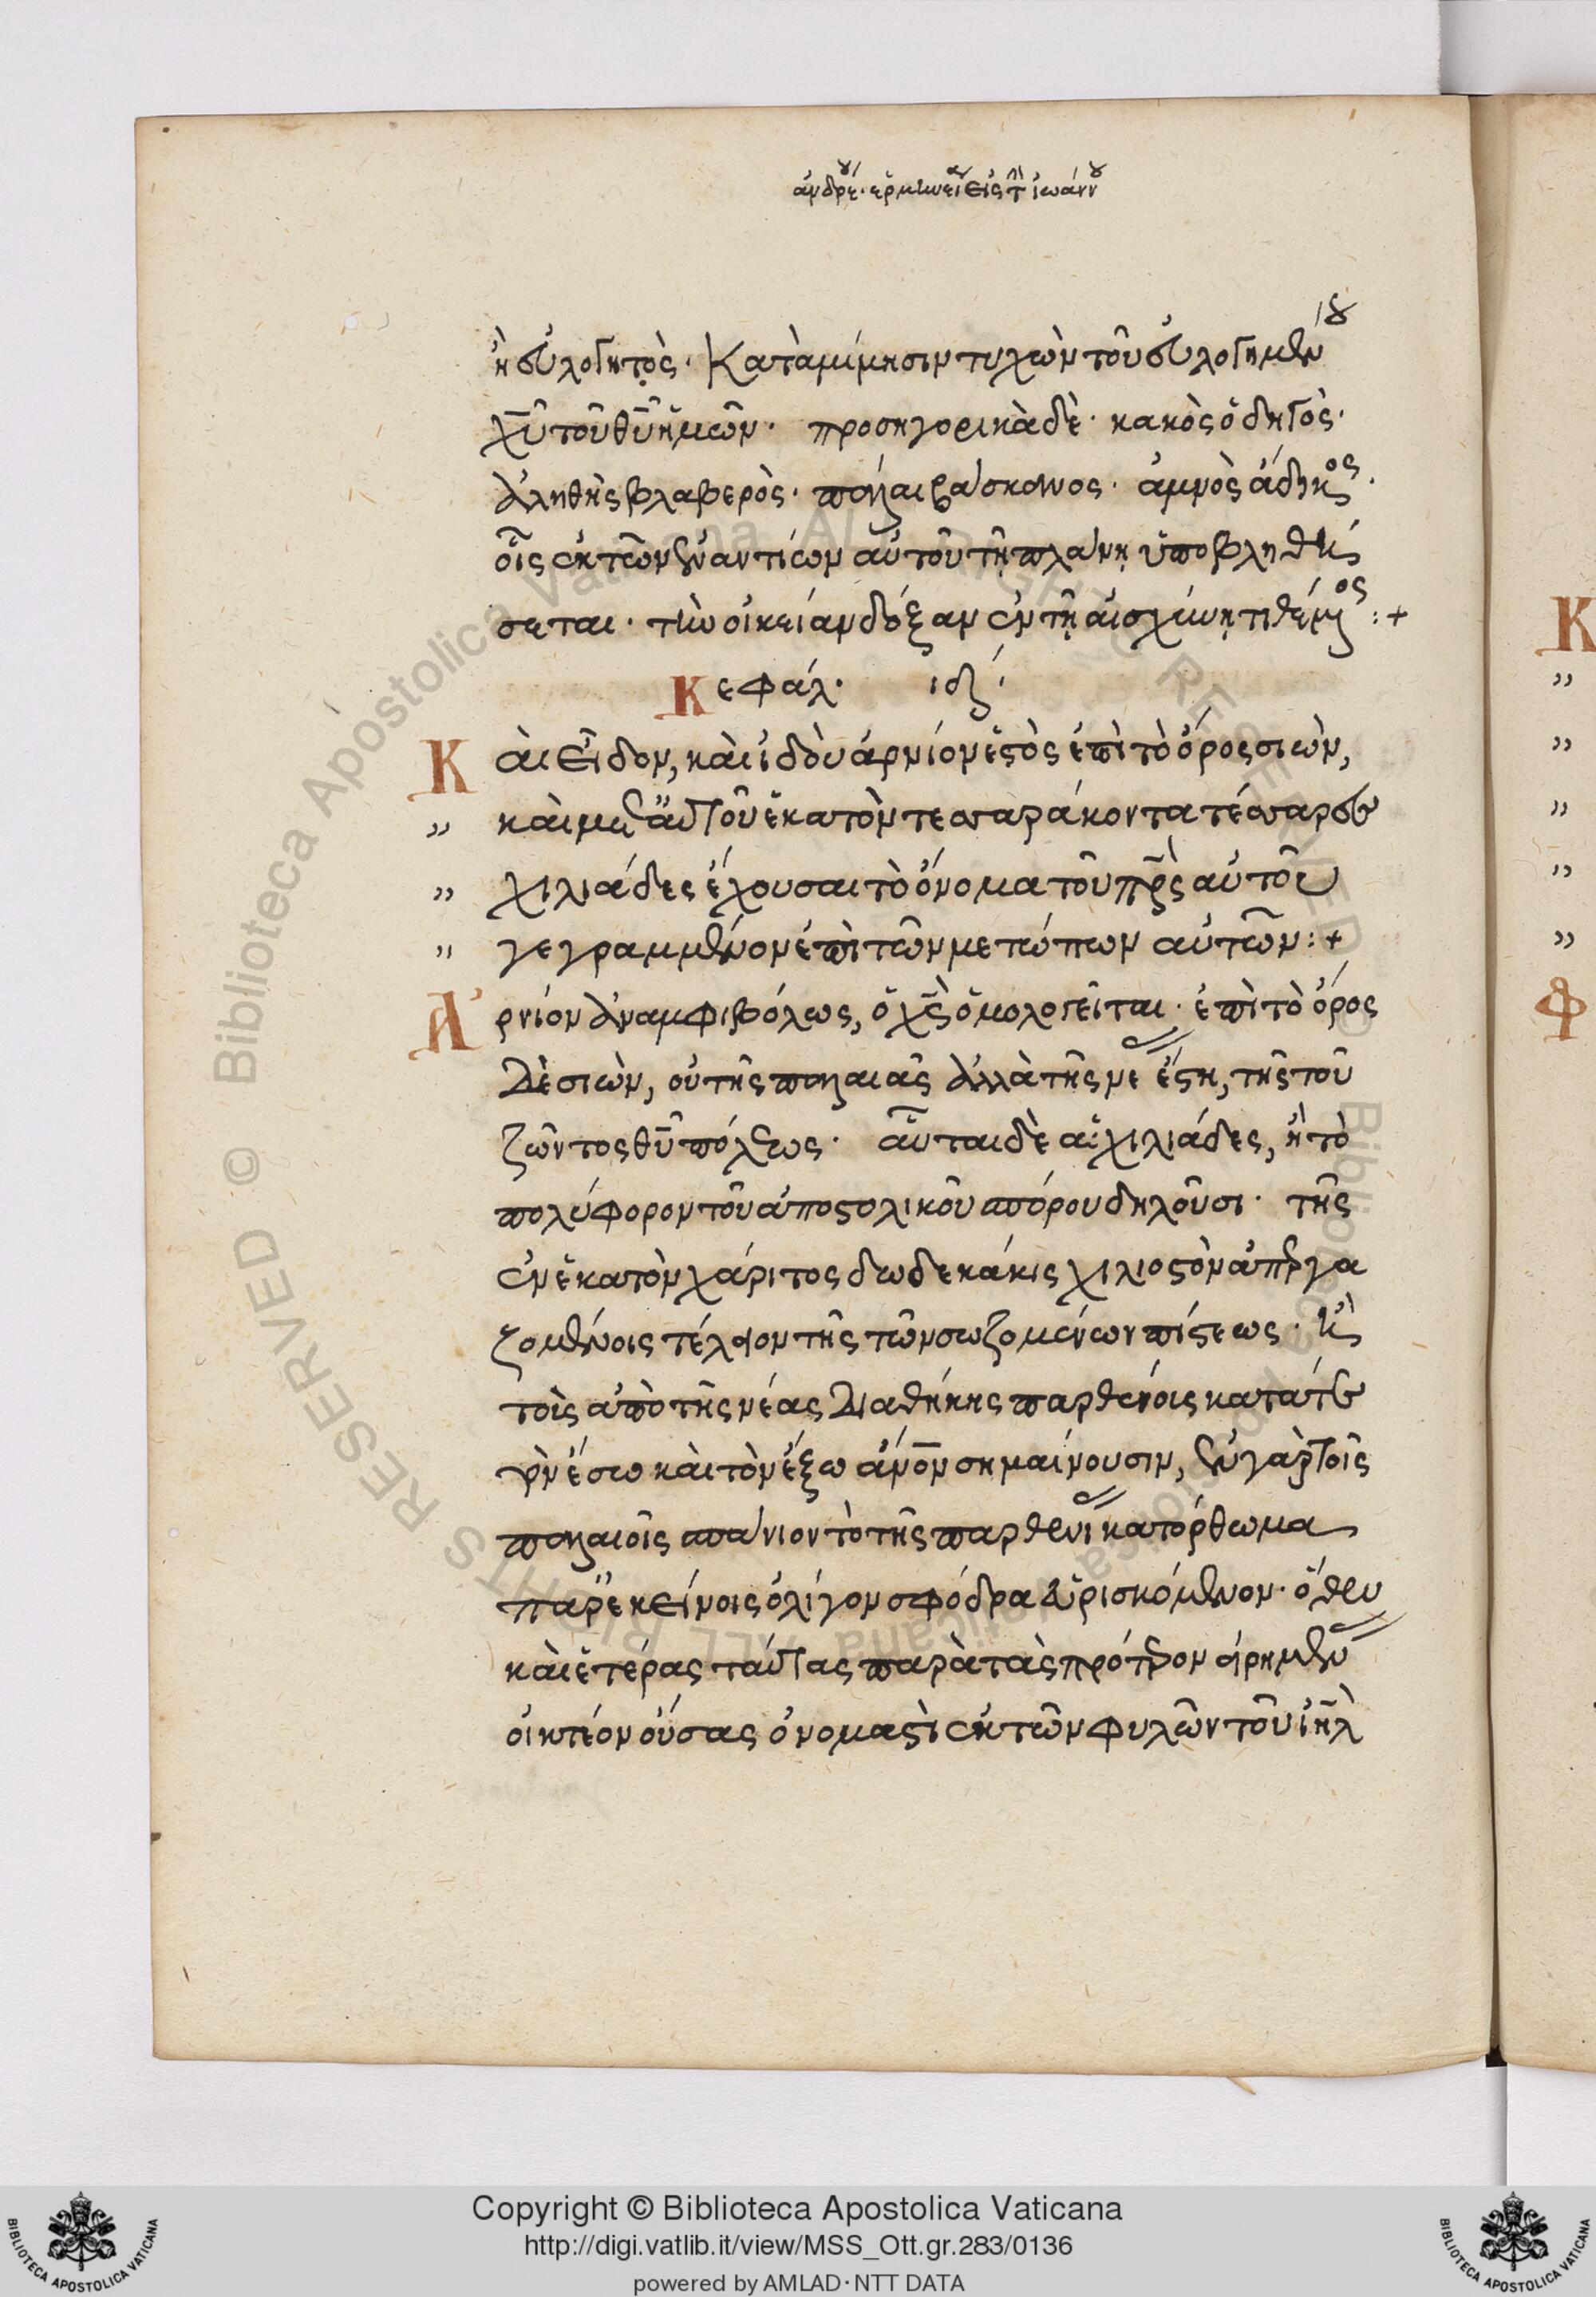 ἀνδρέου· ἑρμηνεία εἰς τὴν ἰωάννου
ἢ εὐλογητὸς· Κατὰ μίμησιν τυχὼν τοῦ εὐλογημένου
χῦ τοῦ θῦ ἡμῶν· προσηγορικὰ δὲ· κακὸς ὁδηγὸς·
ἀληθὴς βλαβερὸς· πάλαι βάσκανος· ἀμνὸς ἄδικος·
οἷς ἐκ τῶν ἐναντίων αὐτοῦ τῇ πλάνῃ ὑποβληθή
σεται· τὴν οἰκείαν δόξαν ἐν τῇ αἰσχύνῃ τιθέμενος :+
Κεφάλ·
Κὰι εἶδον, κὰι ἰδὸυ ἀρνίον ἑστὸς ἐπὶ τὸ ὄρος σιὼν,
„ κὰι μετ' αὐτοῦ ἑκατὸν τεσσαράκοντα τέσσαρες
„ χιλιάδες ἔχουσαι τὸ ὄνομα τοῦ πρς αὐτοῦ
„ γεγραμμένον ἐπὶ τῶν μετώπων αὐτῶν :+
Ἀρνίον ἀναμφιβόλως, ὁ χς ὁμολογεῖται· ἐπὶ τὸ ὄρος
δὲ σιὼν, οὐ τῆς παλαιᾶς ἀλλὰ τῆς νέας ἔστη, τῆς τοῦ
ζῶντος θῦ πόλεως· αὗται δὲ αἱ χιλιάδες, ἢ τὸ
πολύφορον τοῦ ἀποστολικοῦ σπόρου δηλοῦσι· τῆς
ἐν ἑκατὸν χάριτος δωδεκάκις χιλιοστὸν ἀπεργα
ζομένοις τέλειον τῆς τῶν σωζομένων πίστεως· ἢ
τοὶς ἀπὸ τῆς νέας διαθήκης παρθένοις κατά τε
τὸν ἔσω κὰι τὸν ἔξω ἄνον σημαίνουσιν, ἐν γὰρ τοῖς
παλαιοῖς σπάνιον τὸ τῆς παρθενίας κατόρθωμα
παρ' ἐκείνοις ὀλίγον σφόδρα εὑρισκόμενον· ὅθεν
κὰι ἑτέρας ταύτας παρὰ τὰς πρότερον εἰρημένας
οἰητέον οὔσας ὀνομαστὶ ἐκ τῶν φυλῶν τοῦ ἰηλ
Copyright © Biblioteca Apostolica Vaticana
http://digi.vatlib.it/view/MSS_Ott.gr.283/0136
powered by AMLAD·NTT DATA